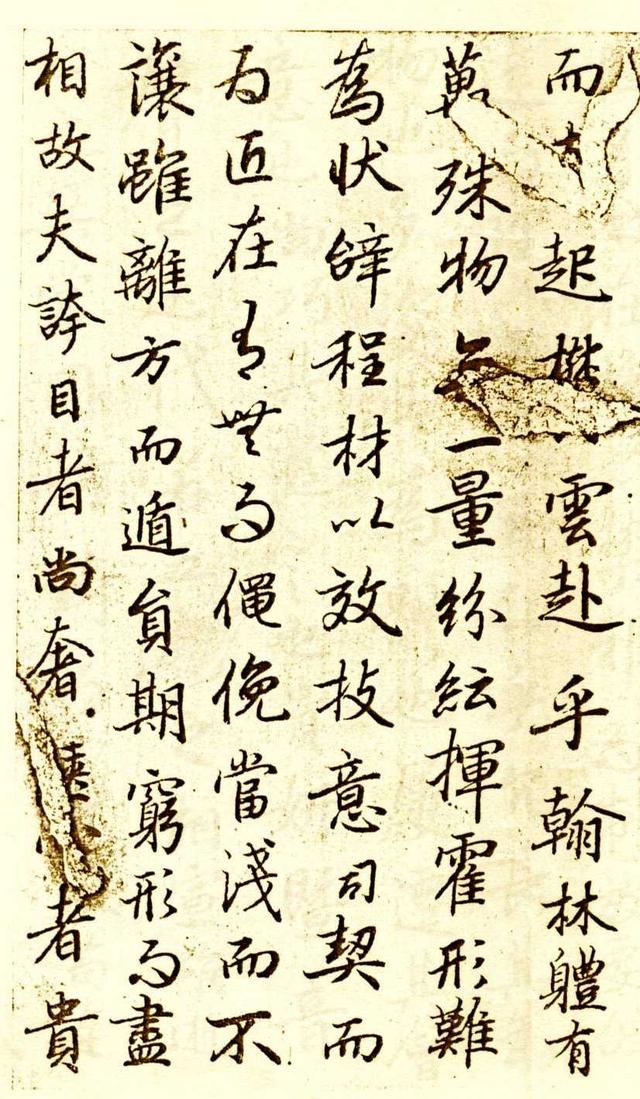 而起雲赴乎翰林軆有
萬殊物無一量紛紜揮霍形難
為狀辝程材以效技意司契而
為匠在有無而僶俛當淺而不
讓雖離方而遁員期窮形而盡
相故夫誇目者尚奢者貴